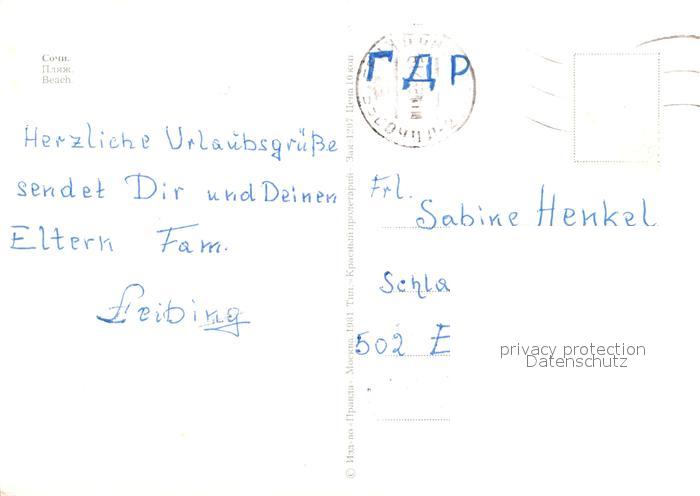 Сочи.
Пляж.
Beach.
Herzliche Urlaubsgrüße
sendet Dir und Deinen
Eltern Fam.
Leibing
© Изд-во «Правда» Москва. 1981 Тип. «Красный пролетарий» Зак. 1207 Цена 10 коп.
ГДР
Frl.
Sabine Henkel
Schla
502 E
privacy protection
Datenschutz